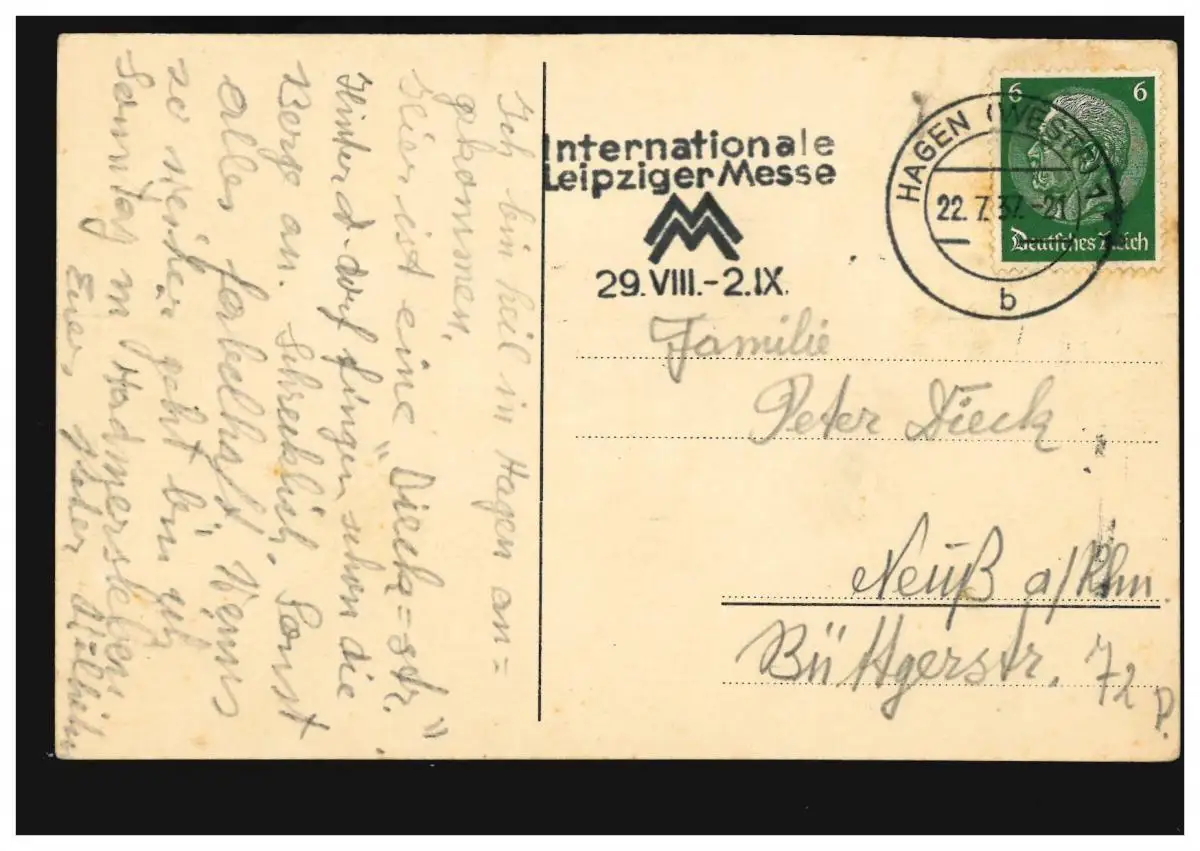 Ich bin heil in Hagen an=
gekommen.
Hier ist eine "Dieck=str."
Hinter d-dorf fingen schon die
Berge an. Schrecklich. Sonst
alles fabelhaft. Wenns
so weiter geht bin ich
Sonntag in Hadmersleben.
Euer
Internationale
Leipziger Messe
29.VIII.-2.IX.
HAGEN (WESTF) 1
22.7.37.-21
b
6 6
Deutsches Reich
Familie
Peter Dieck
Neuß a/Rhn.
Büttgerstr. 72